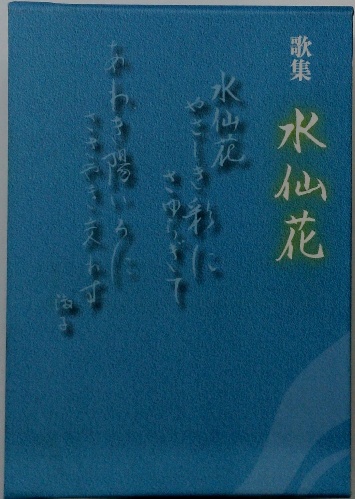 歌集
水仙花
水仙花
やさしき彩に
さゆらぎて
あわき陽いろに
ささやき交わす